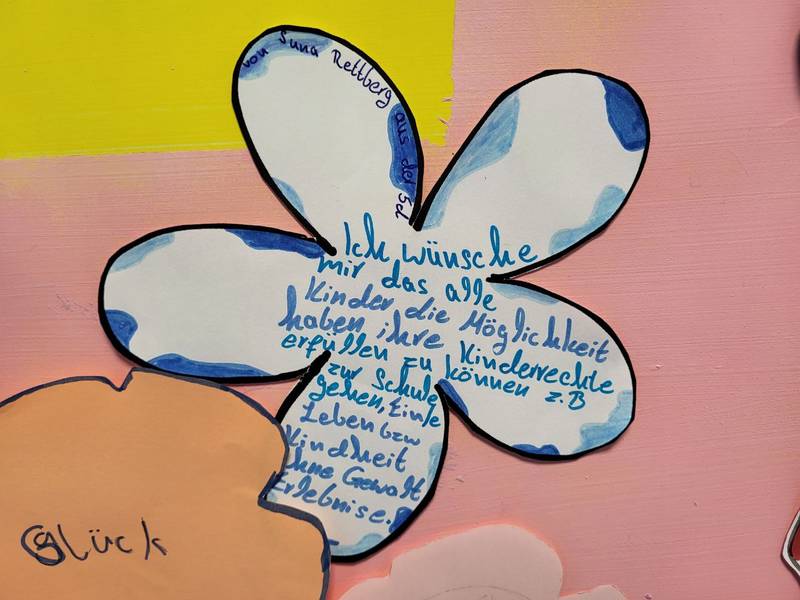 von Suna Rettberg aus der 5d
Ich wünsche
mir das alle
Kinder die Möglichkeit
haben ihre Kinderrechte
erfüllen zu können z.B
zur Schule
gehen, Eine
Leben bzw
Kindheit
ohne Gewalt
Erlebnise.
Glück